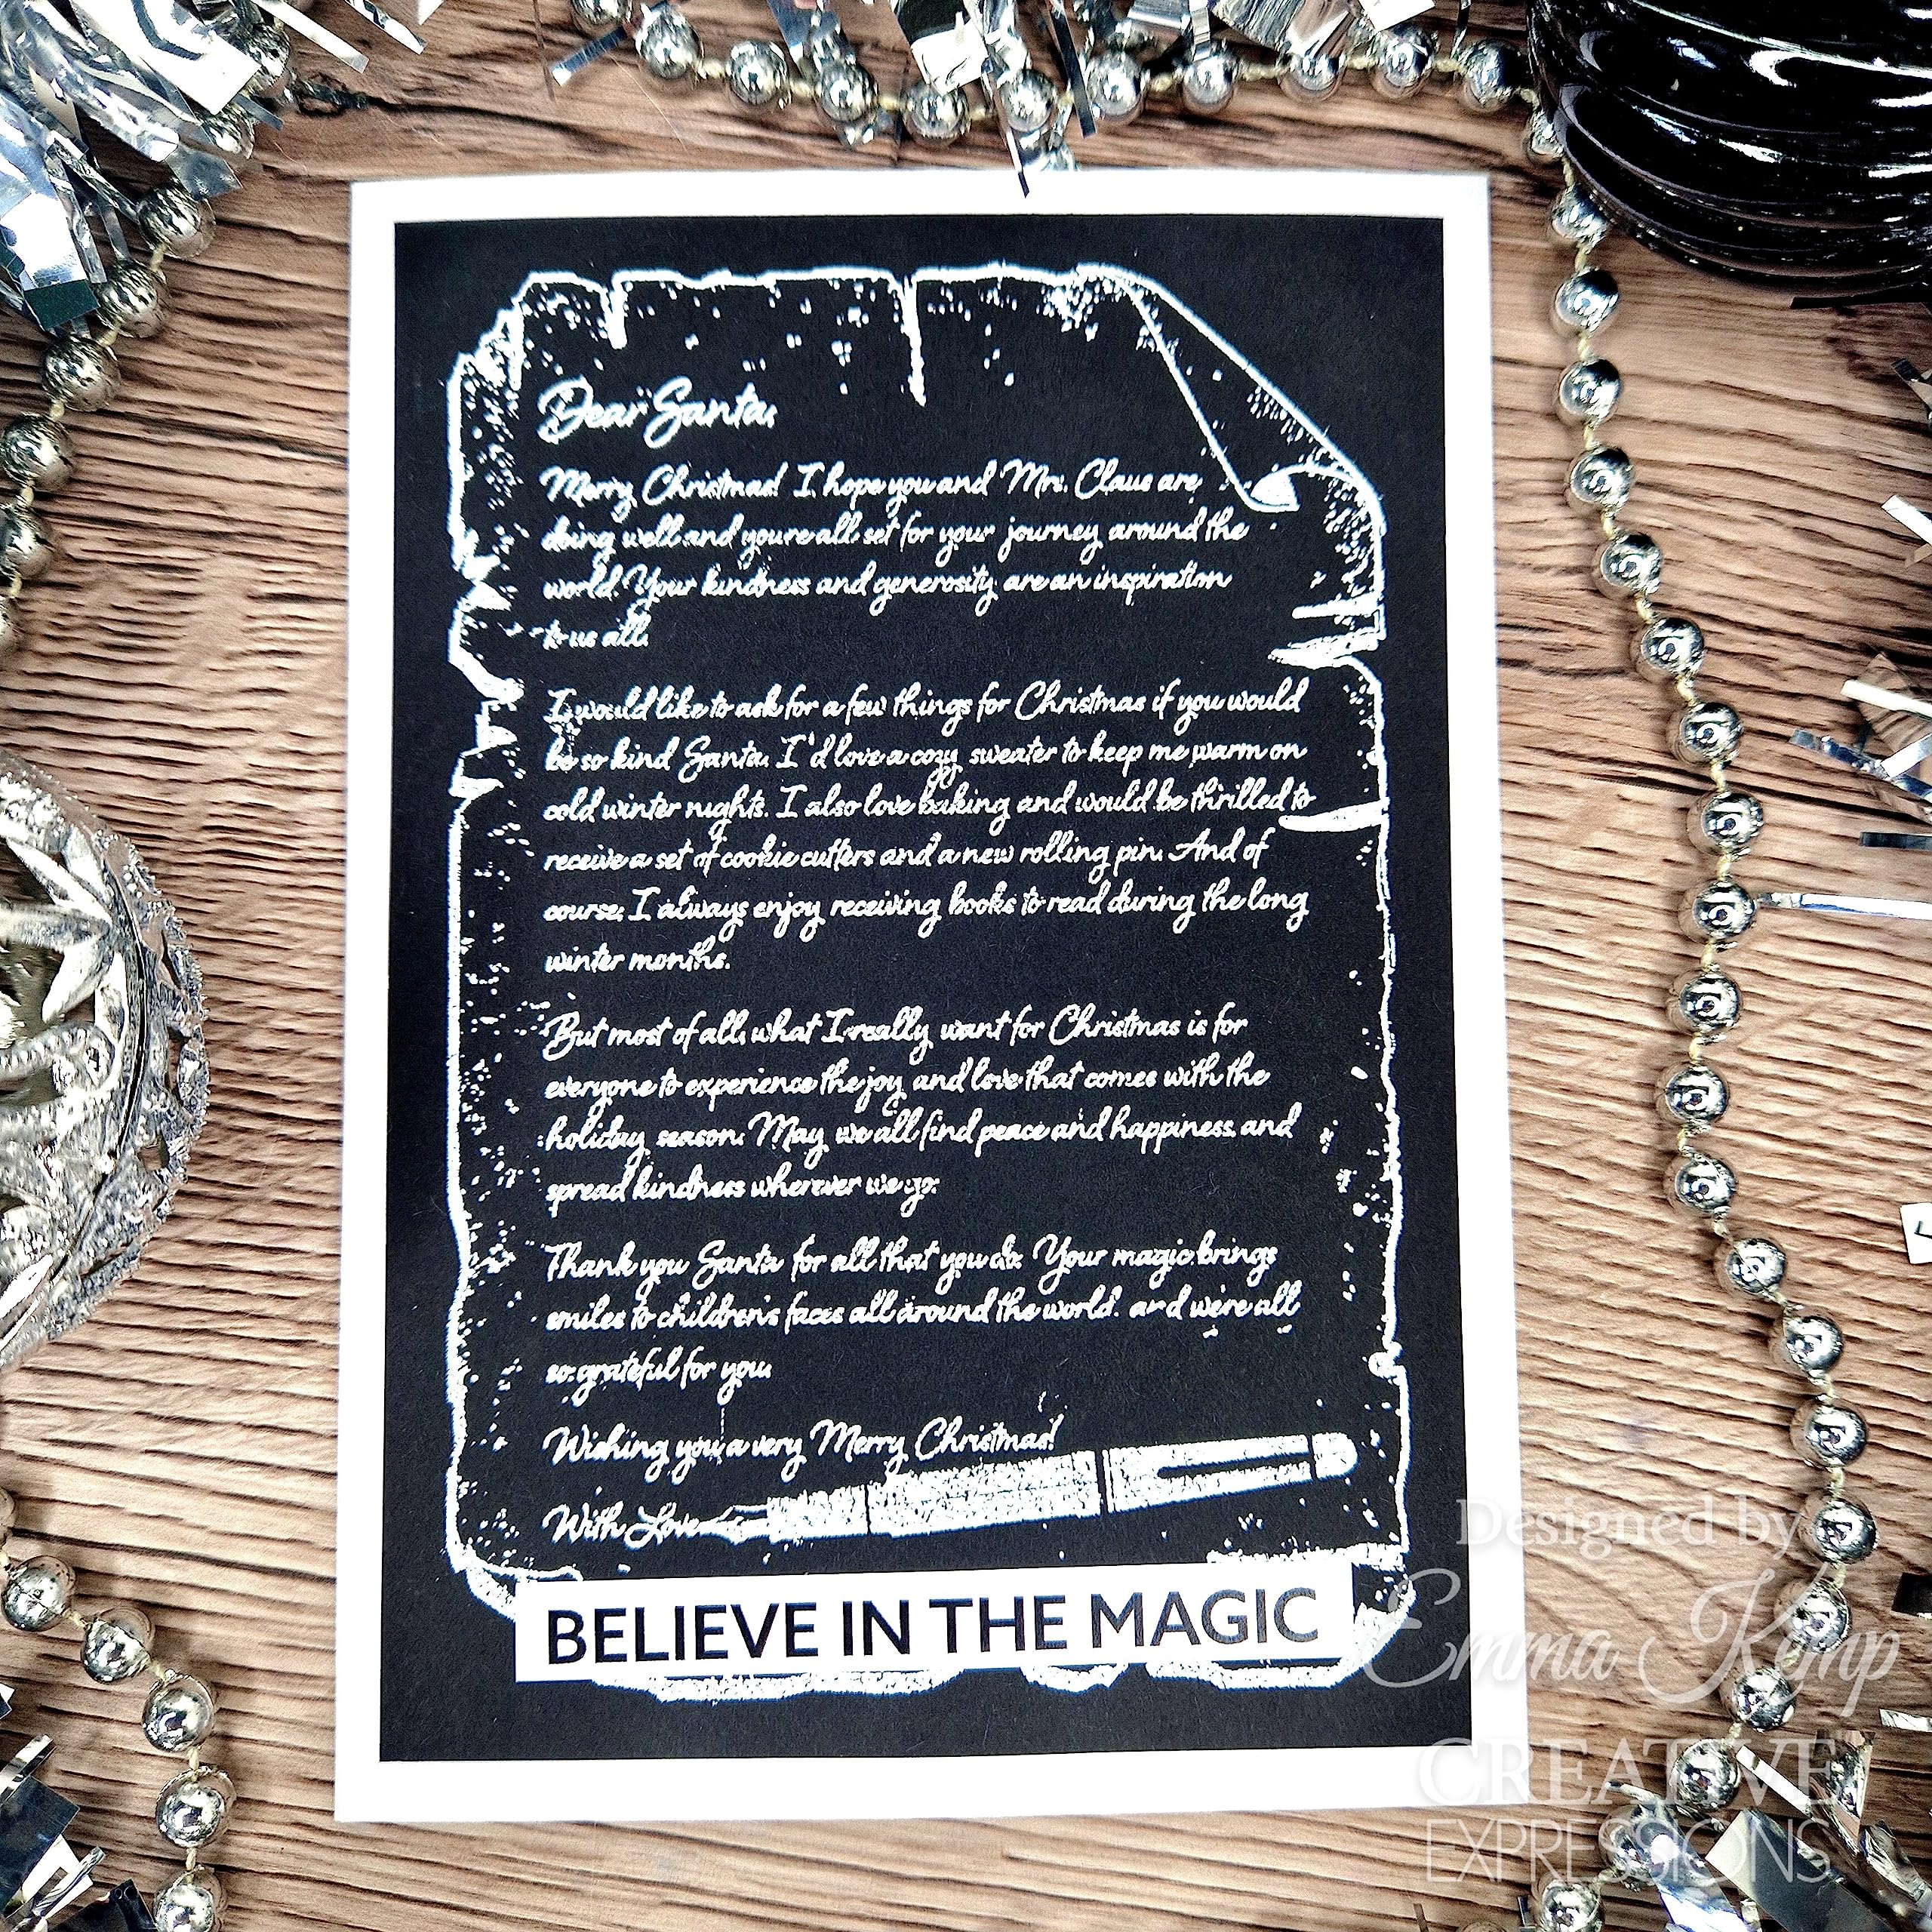 Dear Santa,
Merry Christmas! I hope you and Mrs. Claus are
doing well and you're all set for your journey around the
world. Your kindness and generosity are an inspiration
to us all.
I would like to ask for a few things for Christmas if you would
be so kind Santa. I'd love a cozy sweater to keep me warm on
cold winter nights. I also love baking and would be thrilled to
receive a set of cookie cutters and a new rolling pin. And of
course, I always enjoy receiving books to read during the long
winter months.
But most of all, what I really want for Christmas is for
everyone to experience the joy and love that comes with the
holiday season. May we all find peace and happiness and
spread kindness wherever we go.
Thank you Santa for all that you do. Your magic brings
smiles to children's faces all around the world. and we're all
so grateful for you.
Wishing you a very Merry Christmas!
With Love
BELIEVE IN THE MAGIC
Designed by
Emma Kemp
CREATIVE
EXPRESSIONS